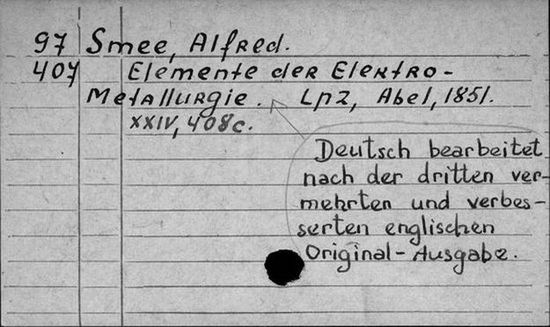 97 Smee, Alfred.
407 Elemente der Elektro-
Metallurgie. Lpz, Abel, 1851.
XXIV, 408c.
Deutsch bearbeitet
nach der dritten ver-
mehrten und verbes-
serten englischen
Original-Ausgabe.